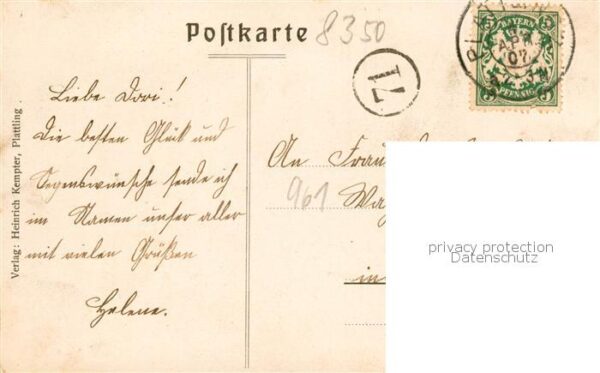 Postkarte
8350
BAYERN
5 5
PFENNIG
APR
07
71
Liebe Dori!
Die besten Glück und
Segenswünsche sende ich
im Namen unser aller
mit vielen Grüßen
Helene.
An
961
in
Verlag: Heinrich Kempter, Plattling
privacy protection
Datenschutz